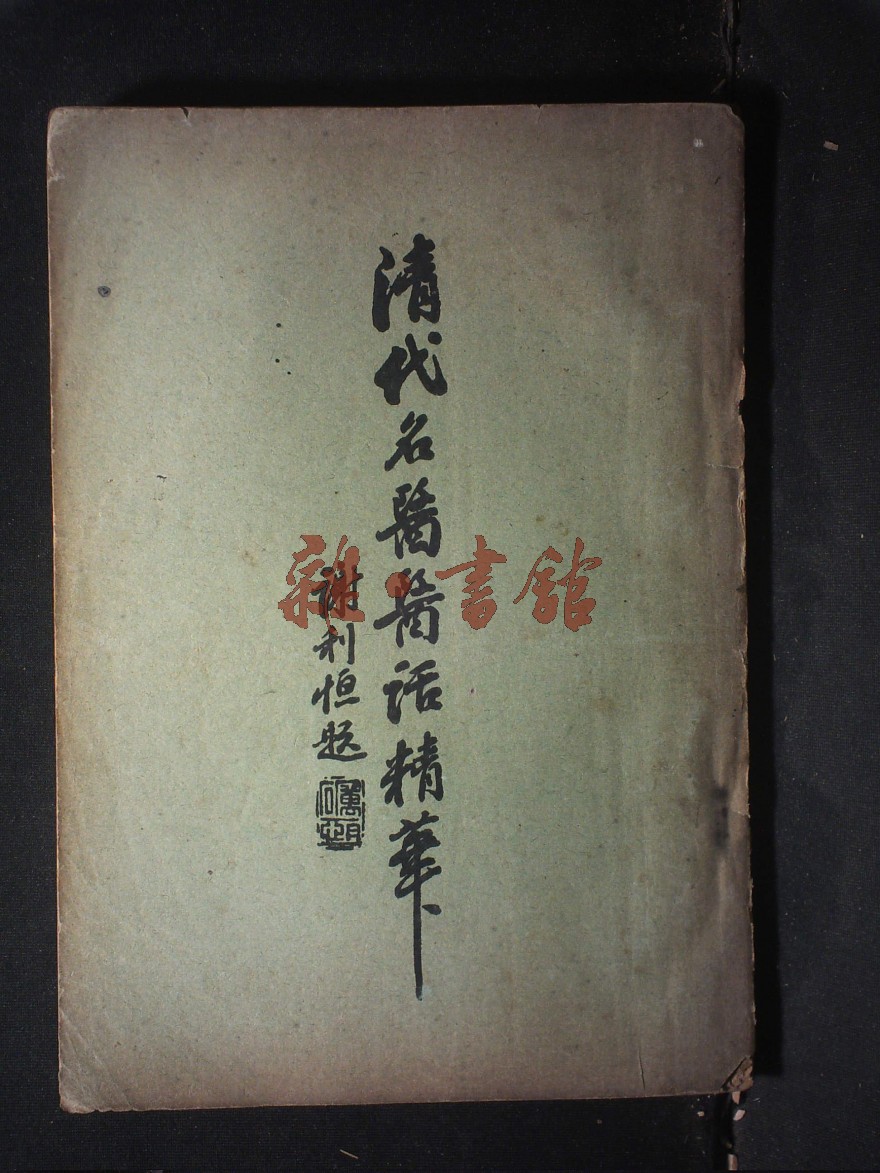 清代名醫醫話精華
謝利恒題
雜·書舘